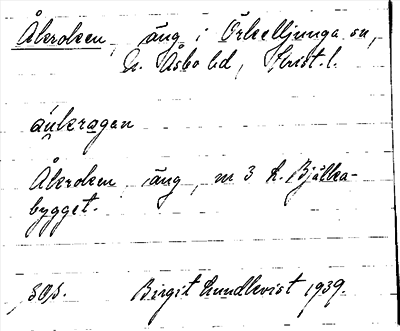 Åkroken, äng i Örkelljunga sn,
N. Åsbo hd, Krist. l.
áukragen
Åkroken äng, nr 3 h. Bjälka-
bygget.
s0s. Birgit Lundkvist 1939.